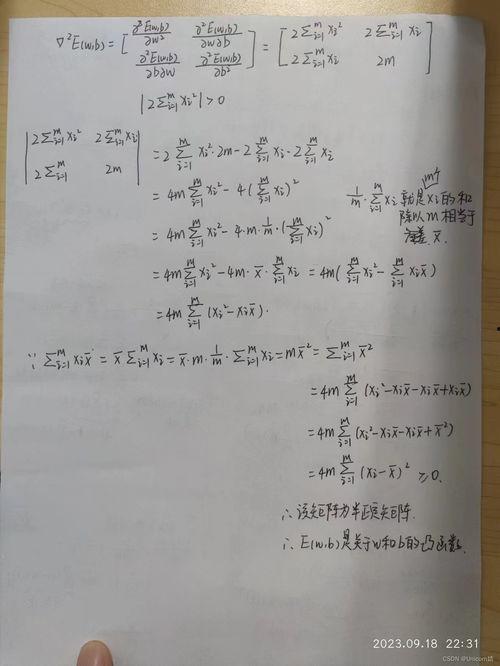 ∇²E(w,b) = [ ∂²E(w,b)/∂w² ∂²E(w,b)/∂w∂b ; ∂²E(w,b)/∂b∂w ∂²E(w,b)/∂b² ] = [ 2∑ᵢ₌₁ᵐ xᵢ² 2∑ᵢ₌₁ᵐ xᵢ ; 2∑ᵢ₌₁ᵐ xᵢ 2m ]
|2∑ᵢ₌₁ᵐ xᵢ²| > 0
| 2∑ᵢ₌₁ᵐ xᵢ² 2∑ᵢ₌₁ᵐ xᵢ ; 2∑ᵢ₌₁ᵐ 2m | = 2∑ᵢ₌₁ᵐ xᵢ²·2m − 2∑ᵢ₌₁ᵐ xᵢ·2∑ᵢ₌₁ᵐ xᵢ
= 4m∑ᵢ₌₁ᵐ xᵢ² − 4(∑ᵢ₌₁ᵐ xᵢ)²
= 4m∑ᵢ₌₁ᵐ xᵢ² − 4·m·1/m·(∑ᵢ₌₁ᵐ xᵢ)²
m个
1/m·∑ᵢ₌₁ᵐ xᵢ 就是xᵢ的和
除以m相当于
x̄.
= 4m∑ᵢ₌₁ᵐ xᵢ² − 4m·x̄·∑ᵢ₌₁ᵐ xᵢ = 4m(∑ᵢ₌₁ᵐ xᵢ² − ∑ᵢ₌₁ᵐ xᵢx̄)
= 4m∑ᵢ₌₁ᵐ (xᵢ² − xᵢx̄).
∵ ∑ᵢ₌₁ᵐ xᵢx̄ = x̄∑ᵢ₌₁ᵐ xᵢ = x̄·m·1/m·∑ᵢ₌₁ᵐ xᵢ = mx̄² = ∑ᵢ₌₁ᵐ x̄²
= 4m∑ᵢ₌₁ᵐ (xᵢ² − xᵢx̄ − xᵢx̄ + xᵢx̄)
= 4m∑ᵢ₌₁ᵐ (xᵢ² − xᵢx̄ − xᵢx̄ + x̄²)
= 4m∑ᵢ₌₁ᵐ (xᵢ − x̄)² ≥0.
∴ 该矩阵为半正定矩阵.
∴ E(w,b)是关于w和b的凸函数.
2023.09.18 22:31
CSDN @Unicorn建